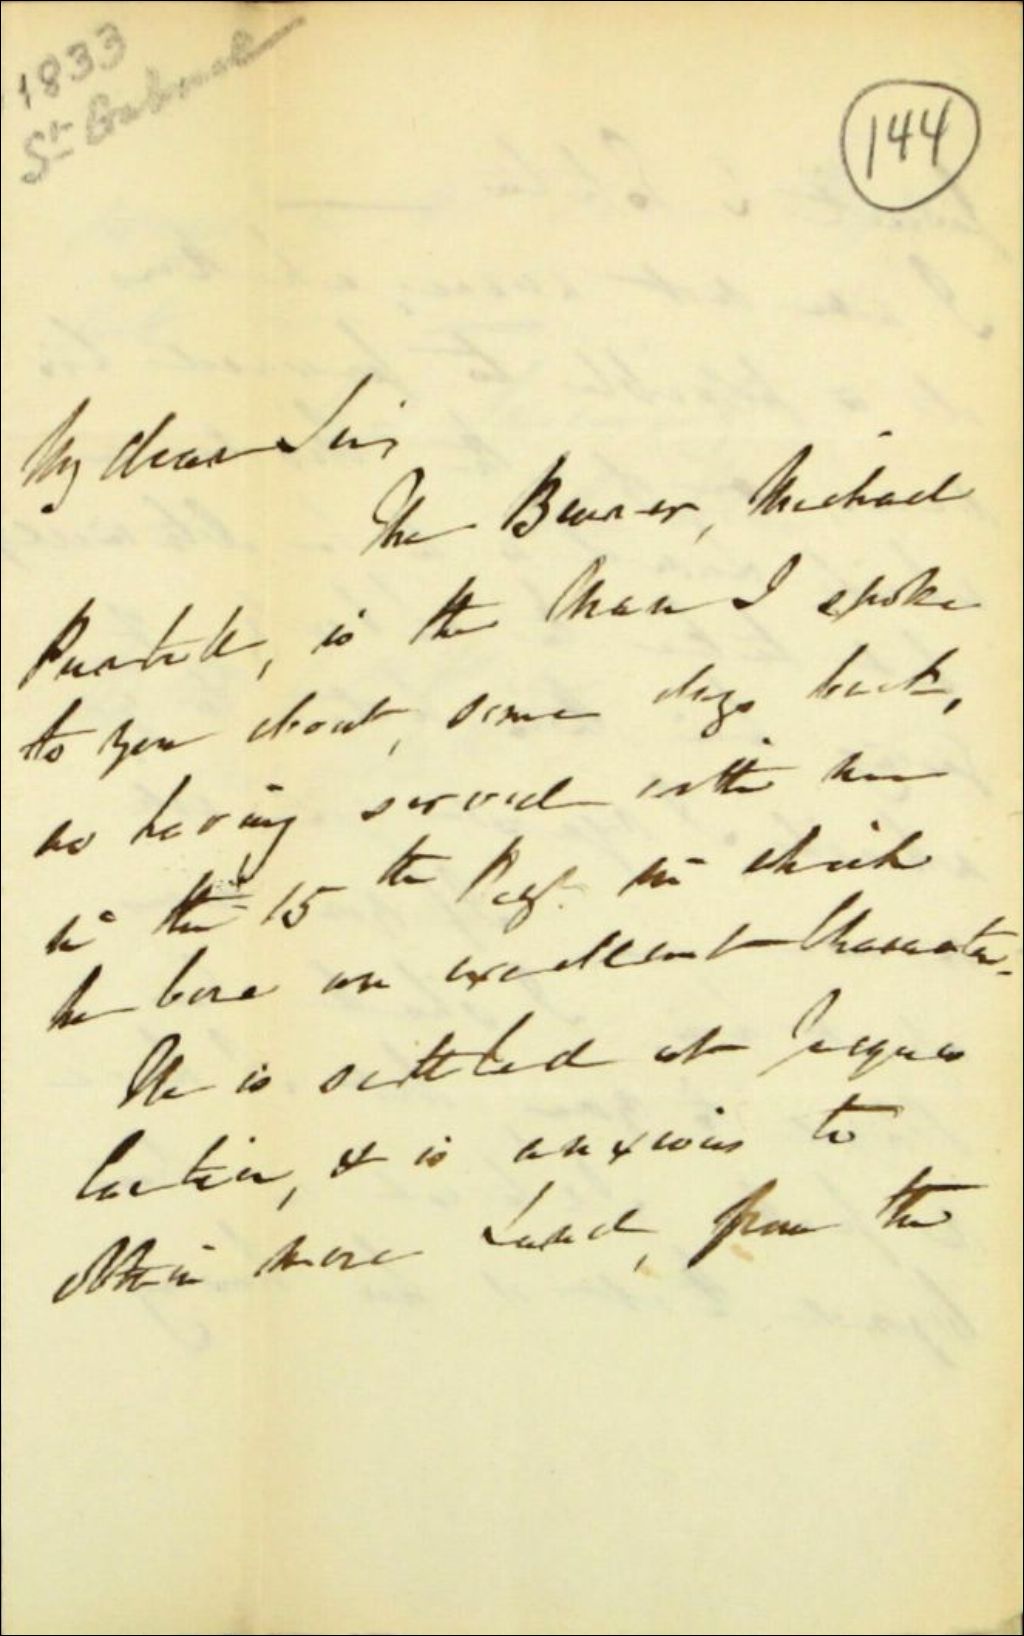 1833
St Gabriel
144
My dear Sir,
The Bearer, Michael
is the Man I spoke
to you about, some days back,
as having served with me
in the 15th Regt. in which
he bore an excellent Character.
He is settled at Jacques
Cartier, & is anxious to
obtain more Land, from the